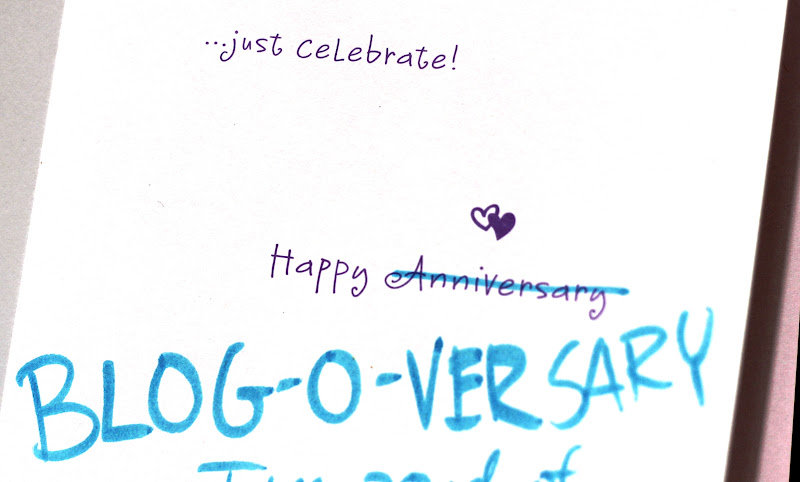 ...just celebrate!
Happy Anniversary
BLOG-O-VERSARY